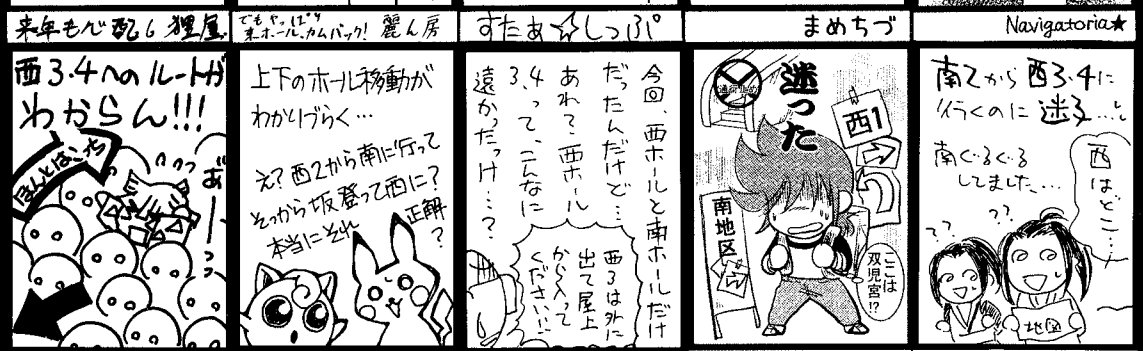 来年も心配し狸屋
西3・4へのルートが
わからん!!!
ほんとはこっち
あ゛ーーっっ
でもやっぱり
東ホールカムバック!
麗ん房
上下のホール移動が
わかりづらく…
え?西2から南に行って
そっから坂登って西に?
本当にそれ正解?
すたあ☆しっぷ
今回、西ホールと南ホールだけ
だったんだけど…
あれ?西ホール
3、4って、こんなに
遠かったっけ…?
西3は外に
出て屋上
から入って
ください!!
まめちづ
迷った
通行止め
西1
南地区
ここは
双児宮!?
Navigatoria★
南2から西3・4に
行くのに迷子…。
南ぐるぐる
してました…
西はどこ…
??
??
地図